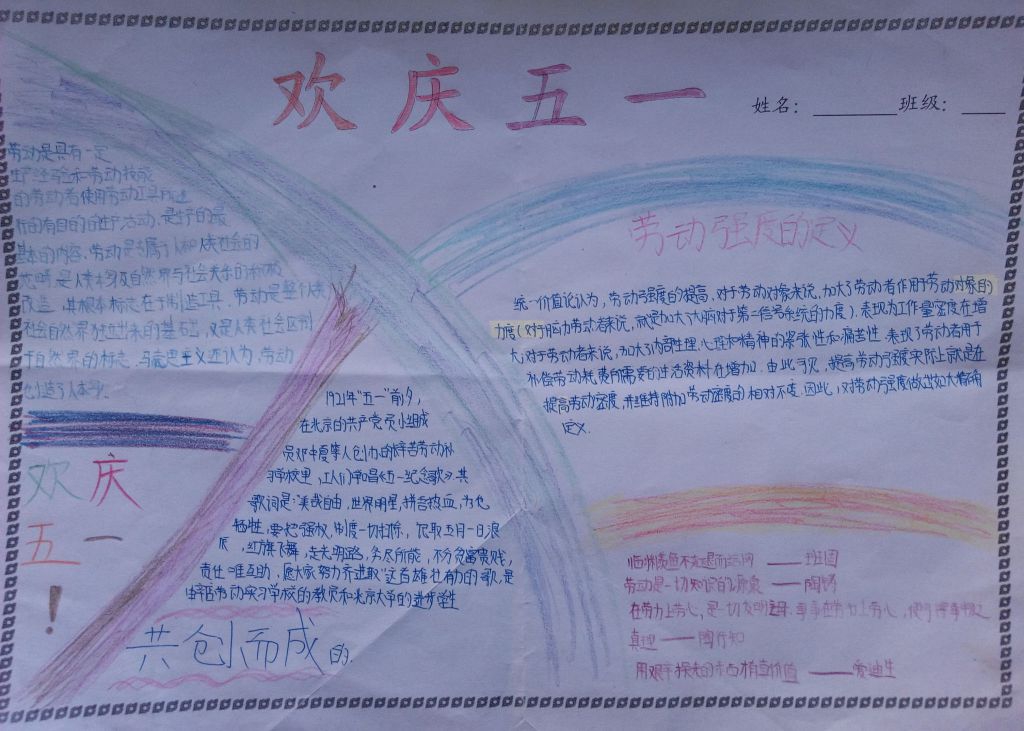 欢庆五一
姓名：________班级：____
劳动是具有一定
生产经验和劳动技能
的劳动者使用劳动工具所进
行的有目的的生产活动，是生产的最
基本的内容。劳动是专属于人和人类社会的
范畴，是人类本身及自然界与社会关系的积极
改造，其根本标志在于制造工具，劳动是整个人类
社会自然界独立出来的基础，又是人类社会区别
于自然界的标志。马克思主义还认为，劳动
创造了人本身。
欢庆
五一
！
1921年“五一”前夕，
在北京的共产党员小组成
员邓中夏等人创办的
习学校里，工人们常唱《五一纪念歌》，其
歌词是：“美哉自由，世界明星，拼吾热血，为他
牺牲，要把强权，制度一切扫除，记取五月一日良
辰，红旗飞舞，走光明路，各尽所能，不分贫富贵贱，
责任唯互助，愿大家努力齐进取”这首雄壮有力的歌，是
由辛店劳动实习学校的教员和北京大学的进步学生
共创而成的.
劳动强度的定义
统一价值论认为，劳动强度的提高，对于劳动对象来说，加大了劳动者作用于劳动对象的
力度(对于脑力劳动者来说，就是加大了大脑对于第二信号系统的力度)，表现为工作量密度在增
大；对于劳动者来说，加大了内部生理、心理和精神的紧张性和痛苦性，表现了劳动者用于
补偿劳动耗费所需要的生活资料在增加。由此可见，提高劳动强度实际上就是在
提高劳动密度，并维持附加劳动密度的相对不变。因此，对劳动强度做出如大精确
定义.
临渊羡鱼不如退而结网 ——班固
劳动是一切知识的源泉 ——陶铸
在劳力上劳心，是一切发明之母．事事在劳力上劳心，便可得事物之
真理 ——陶行知
用艰辛换来的东西才有价值 ——爱迪生